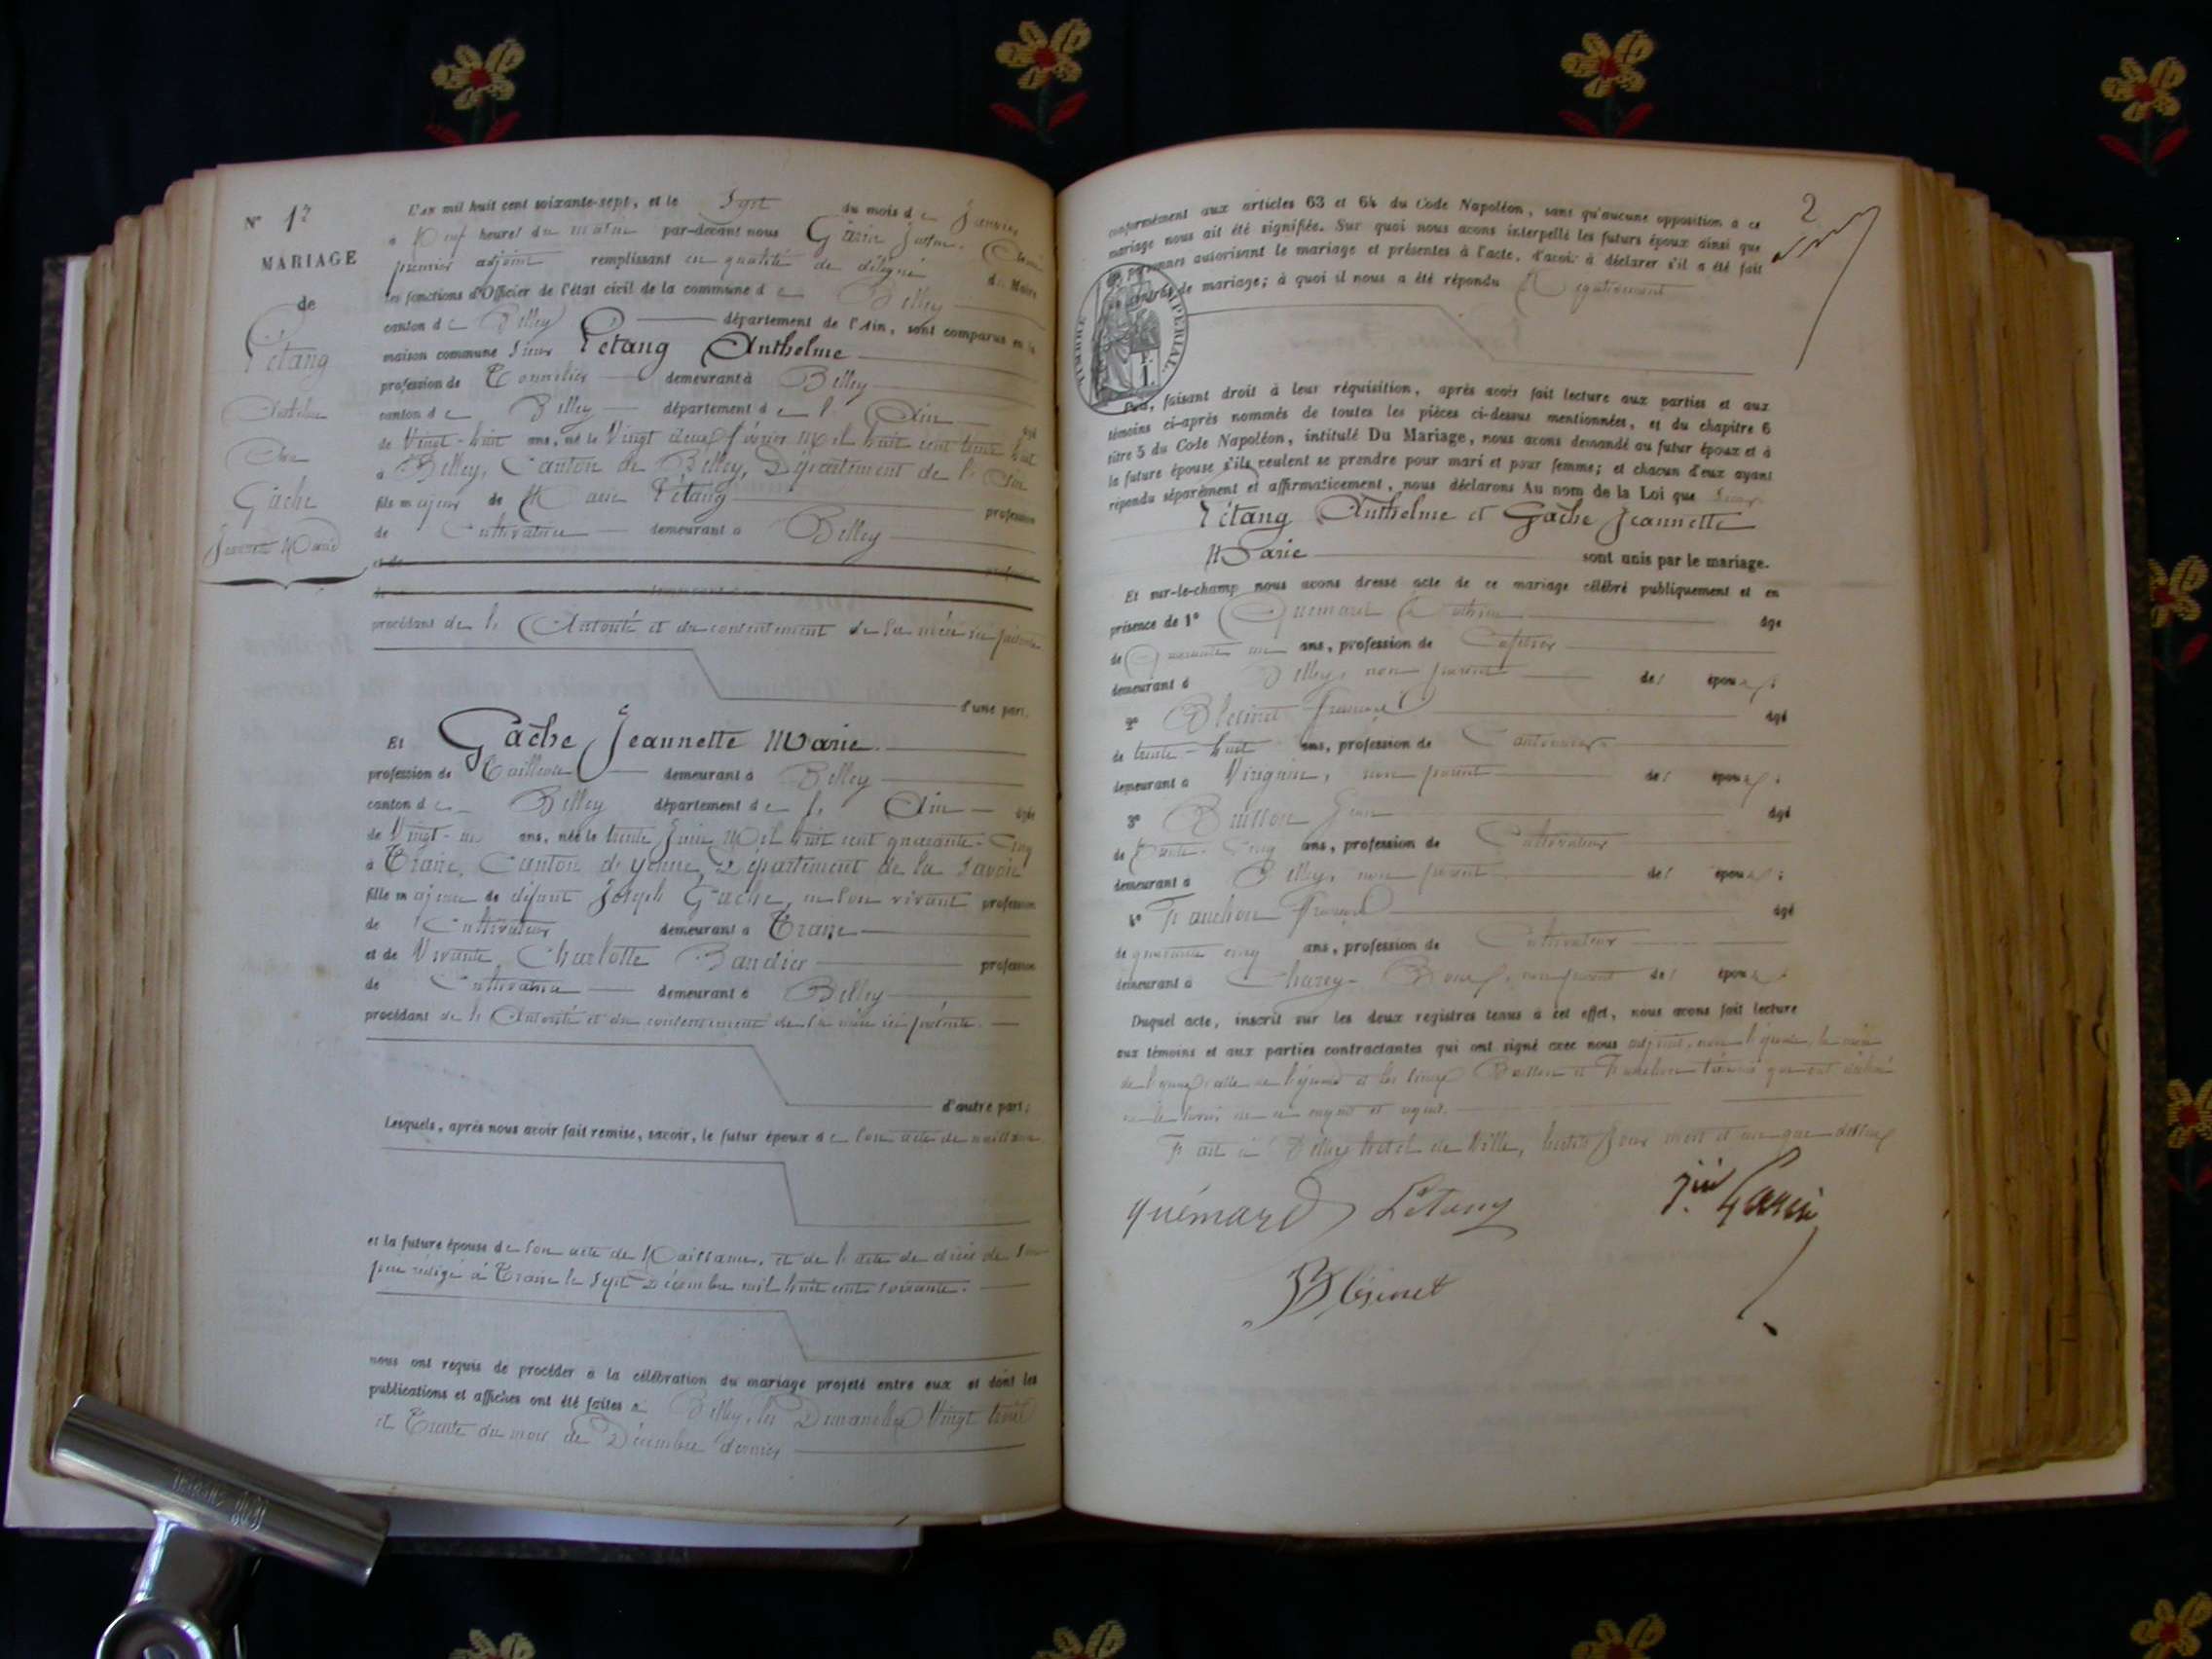 N° 1
MARIAGE
de
Létang
Anthelme
Gache
Jeannette Marie
L'an mil huit cent soixante-sept, et le Sept du mois de Janvier
à Neuf heures du matin par-devant nous
premier adjoint remplissant en qualité de délégué du Maire
les fonctions d'Officier de l'état civil de la commune de Belley
canton de Belley département de l'Ain, sont comparus en la
maison commune Sieur Létang Anthelme
profession de Tonnelier demeurant à Belley
canton de Belley département de l'Ain âgé
de Vingt-huit ans, né le Vingt deux février mil huit cent trente huit
à Belley, Canton de Belley, Département de l'Ain
fils majeur de Marie Létang profession
de Cultivatrice demeurant à Belley
et de profession
de demeurant à
procédant de l'Autorité et du consentement de sa mère ici présente
d'une part.
Et Gache Jeannette Marie
profession de Tailleuse demeurant à Belley
canton de Belley département de l'Ain âgée
de Vingt-un ans, née le trente Juin mil huit cent quarante-Cinq
à Traize, Canton de Yenne, Département de la Savoie
fille majeure de défunt Joseph Gache, en son vivant profession
de Cultivateur demeurant à Traize
et de Vivante Charlotte Baudier profession
de Cultivatrice demeurant à Belley
procédant de l'Autorité et du consentement de sa mère ici présente.
d'autre part;
Lesquels, après nous avoir fait remise, savoir, le futur époux de son acte de naissance
et la future épouse de son acte de Naissance, et de l'acte de décès de son
père rédigé à Traize le Sept Décembre mil huit cent soixante.
nous ont requis de procéder à la célébration du mariage projeté entre eux et dont les
publications et affiches ont été faites à Belley, les Dimanches Vingt trois
et Trente du mois de Décembre dernier
2
conformément aux articles 63 et 64 du Code Napoléon, sans qu'aucune opposition à ce
mariage nous ait été signifiée. Sur quoi nous avons interpellé les futurs époux ainsi que
les personnes autorisant le mariage et présentes à l'acte, d'avoir à déclarer s'il a été fait
un contrat de mariage; à quoi il nous a été répondu Négativement
TIMBRE IMPERIAL
F. 1.
faisant droit à leur réquisition, après avoir fait lecture aux parties et aux
témoins ci-après nommés de toutes les pièces ci-dessus mentionnées, et du chapitre 6
titre 5 du Code Napoléon, intitulé Du Mariage, nous avons demandé au futur époux et à
la future épouse s'ils veulent se prendre pour mari et pour femme; et chacun d'eux ayant
répondu séparément et affirmativement, nous déclarons Au nom de la Loi que Sieur
Létang Anthelme et Gache Jeannette
Marie sont unis par le mariage.
Et sur-le-champ nous avons dressé acte de ce mariage célébré publiquement et en
présence de 1° Quemard âgé
de Quarante un ans, profession de Cafetier
demeurant à Belley, non parent des époux;
2° Blesinet François âgé
de trente-huit ans, profession de Cantonnier
demeurant à Virignin, non parent des époux;
3° Buisson Jean âgé
de Cinq ans, profession de Cultivateur
demeurant à Belley, non parent des époux;
4° Franchon François âgé
de quarante cinq ans, profession de Cultivateur
demeurant à Chazey-Bons, non parent des époux
Duquel acte, inscrit sur les deux registres tenus à cet effet, nous avons fait lecture
aux témoins et aux parties contractantes qui ont signé avec nous adjoint, non l'épouse, la mère
de l'époux, celle de l'épouse et les sieurs Buisson et Franchon témoins qui ont déclaré
ne le savoir de ce enquis et requis.
Fait à Belley hôtel de Ville, lesdits jour mois et an que dessus
Quémard Létang
Blésinet